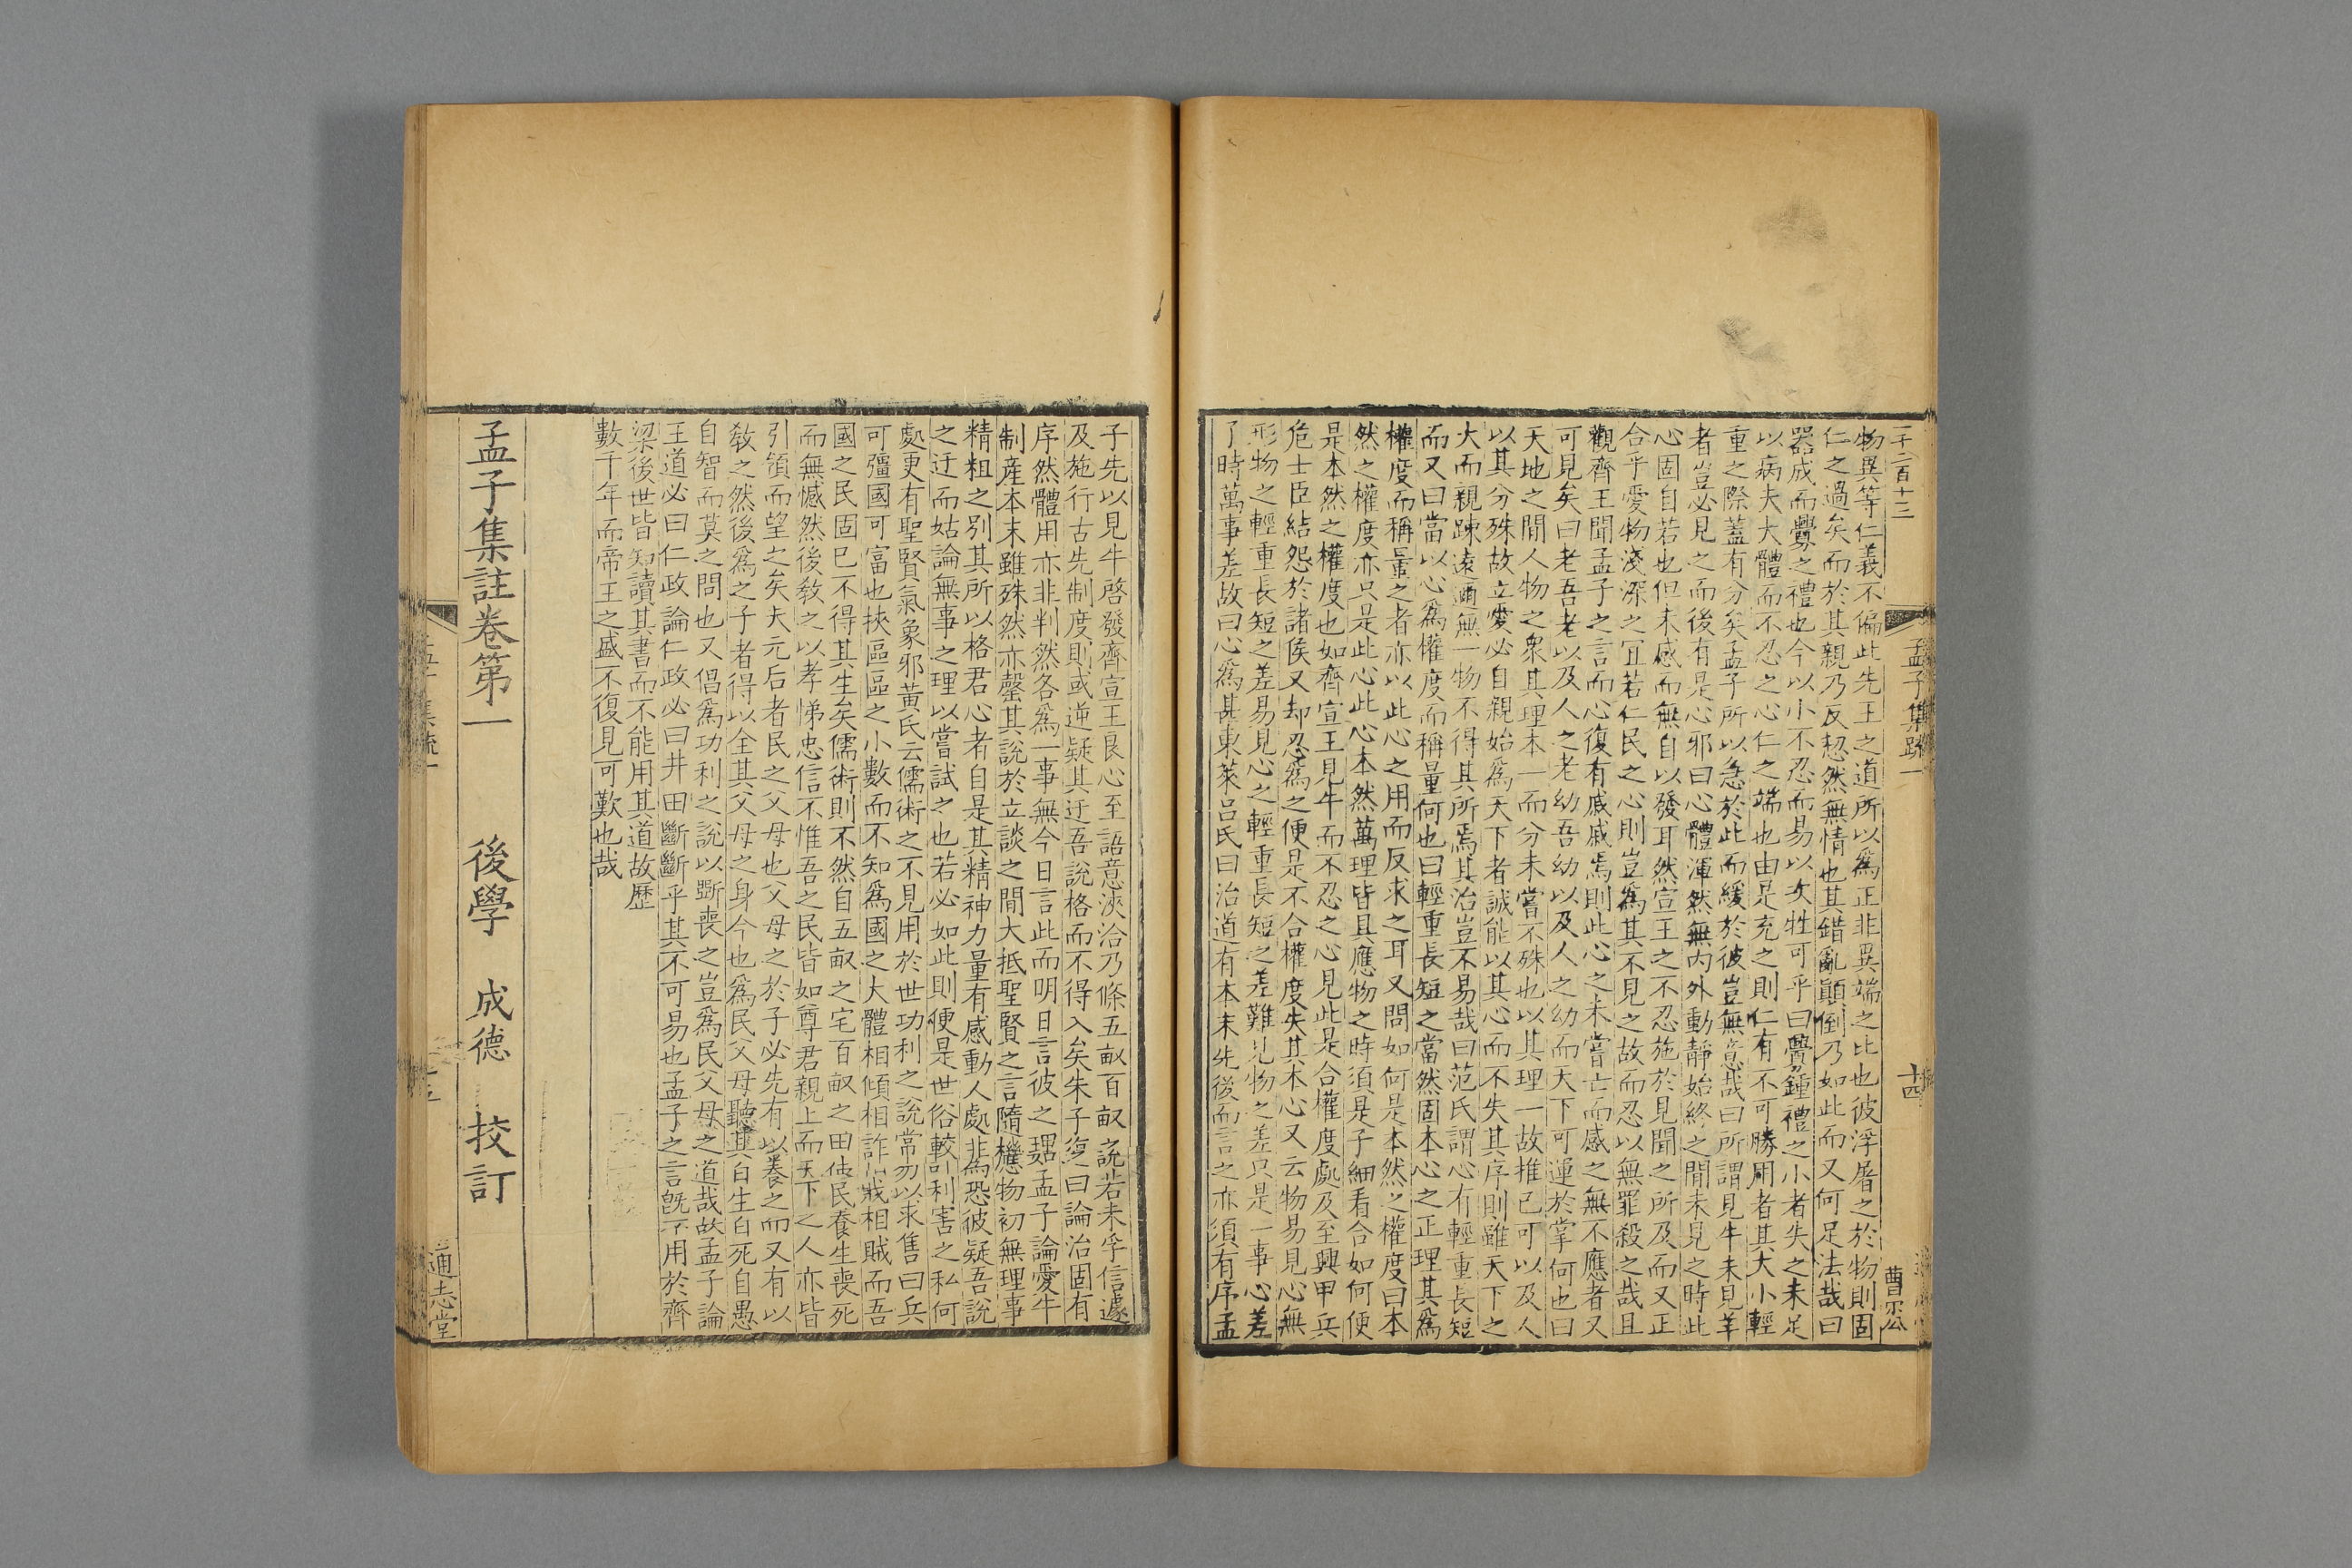 二千二百十三
孟子集疏一
十四
曹郊公
物異等仁義不偏此先王之道所以爲正非異端之比也彼浮屠之於物則固
仁之過矣而於其親乃反恝然無情也其錯亂顛倒乃如此而又何足法哉曰
器成而釁之禮也今以小不忍而易以次牲可乎曰釁鍾禮之小者失之未足
以病夫大體而不忍之心仁之端也由是充之則仁有不可勝用者其大小輕
重之際蓋有分矣孟子所以急於此而緩於彼豈無意哉曰所謂見牛未見羊
者豈必見之而後有是心邪曰心體渾然無內外動靜始終之間未見之時此
心固自若也但未感而無自以發耳然宣王之不忍施於見聞之所及而又正
合乎愛物淺深之宜若仁民之心則豈爲其不見之故而忍以無罪殺之哉且
觀齊王聞孟子之言而心復有戚戚焉則此心之未嘗亡而感之無不應者又
可見矣曰老吾老以及人之老幼吾幼以及人之幼而天下可運於掌何也曰
天地之間人物之衆其理本一而分未嘗不殊也以其理一故推己可以及人
以其分殊故立愛必自親始爲天下者誠能以其心而不失其序則雖天下之
大而親踈遠邇無一物不得其所焉其治豈不易哉曰范氏謂心有輕重長短
而又曰當以心爲權度而稱量何也曰輕重長短之當然固本心之正理其爲
權度而稱量之者亦以此心之用而反求之耳又問如何是本然之權度曰本
然之權度亦只是此心此心本然萬理皆具應物之時須是子細看合如何便
是本然之權度也如齊宣王見牛而不忍之心見此是合權度處及至興甲兵
危士臣結怨於諸侯又却忍爲之便是不合權度失其本心又云物易見心無
形物之輕重長短之差易見心之輕重長短之差難見物之差只是一事心差
了時萬事差故曰心爲甚東萊呂氏曰治道有本末先後而言之亦須有序孟
子先以見牛啓發齊宣王良心至語意浹洽乃條五畝百畝之說若未孚信遽
及施行古先制度則或逆疑其迂吾說格而不得入矣朱子復曰論治固有
序然體用亦非判然各爲一事無今日言此而明日言彼之理孟子論愛牛
制產本末雖殊然亦罄其說於立談之間大抵聖賢之言隨機應物初無理事
精粗之別其所以格君心者自是其精神力量有感動人處非爲恐彼疑吾說
之迂而姑論無事之理以嘗試之也若必如此則便是世俗較計利害之私何
處更有聖賢氣象邪黃氏云儒術之不見用於世功利之說常勿以求售曰兵
可彊國可富也挾區區之小數而不知爲國之大體相傾相詐相戕相賊而吾
國之民固已不得其生矣儒術則不然自五畝之宅百畝之田使民養生喪死
而無憾然後敎之以孝悌忠信不惟吾之民皆如尊君親上而天下之人亦皆
引領而望之矣夫元后者民之父母也父母之於子必先有以養之而又有以
敎之然後爲之子者得以全其父母之身今也爲民父母聽其自生自死自愚
自智而莫之問也又倡爲功利之說以斲喪之豈爲民父母之道哉故孟子論
王道必曰仁政論仁政必曰井田斷斷乎其不可易也孟子之言旣不用於齊
梁後世皆知讀其書而不能用其道故歷
數千年而帝王之盛不復見可歎也哉
孟子集註卷第一 後學 成德 挍訂
通志堂